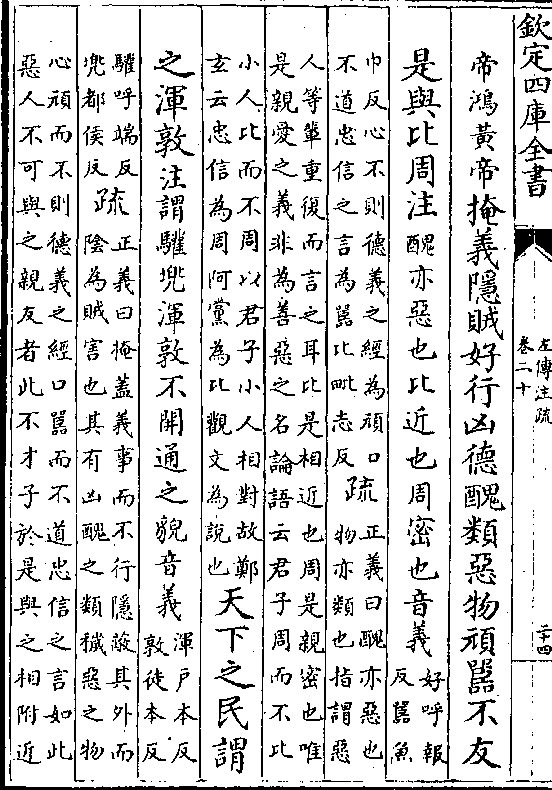 欽定四庫全書
左傳注疏
卷二十
二十四
帝鴻黃帝掩義隱賊好行凶德醜類惡物頑嚚不友
是與比周注醜亦惡也比近也周密也音義
好呼報
反嚚魚
巾反心不則德義之經為頑口
不道忠信之言為嚚比毗志反
疏
正義曰醜亦惡也
物亦類也指謂惡
人等輩重復而言之耳比是相近也周是親密也唯
是親愛之義非為善惡之名論語云君子周而不比
小人比而不周以君子小人相對故鄭
玄云忠信為周阿黨為比觀文為說也
天下之民謂
之渾敦注謂驩兜渾敦不開通之貌音義
渾戶本反
敦徒本反
驩呼端反
兜都侯反
疏
正義曰掩蓋義事而不行隱其外而
陰為賊害也其有凶醜之類穢惡之物
心頑而不則德義之經口嚚而不道忠信之言如此
惡人不可與之親友者此不才子於是與之相附近